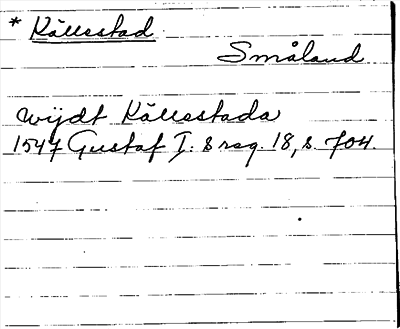 * Källsstad
Småland
wijdt Källsstada
1547 Gustaf I:s reg. 18, s. 704.